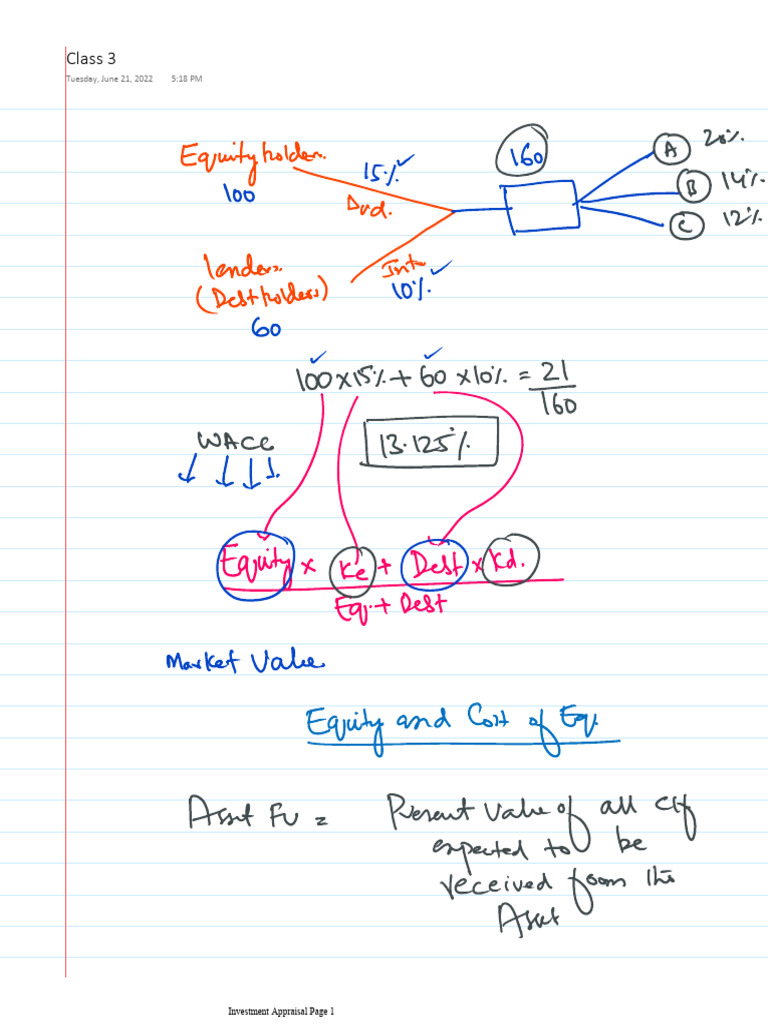 Class 3
Tuesday, June 21, 2022 5:18 PM
Equity holders.
100
15%
Dvd.
160
A 20%
B 14%
C 12%
lenders.
(Debt holders)
60
Int
10%
100 x 15% + 60 x 10% = 21
160
WACC
13.125%
Equity x Ke + Debt x Kd.
Eq. + Debt
Market Value
Equity and Cost of Eq.
Asset FV = Present Value of all C/f
expected to be
received from the
Asset
Investment Appraisal Page 1